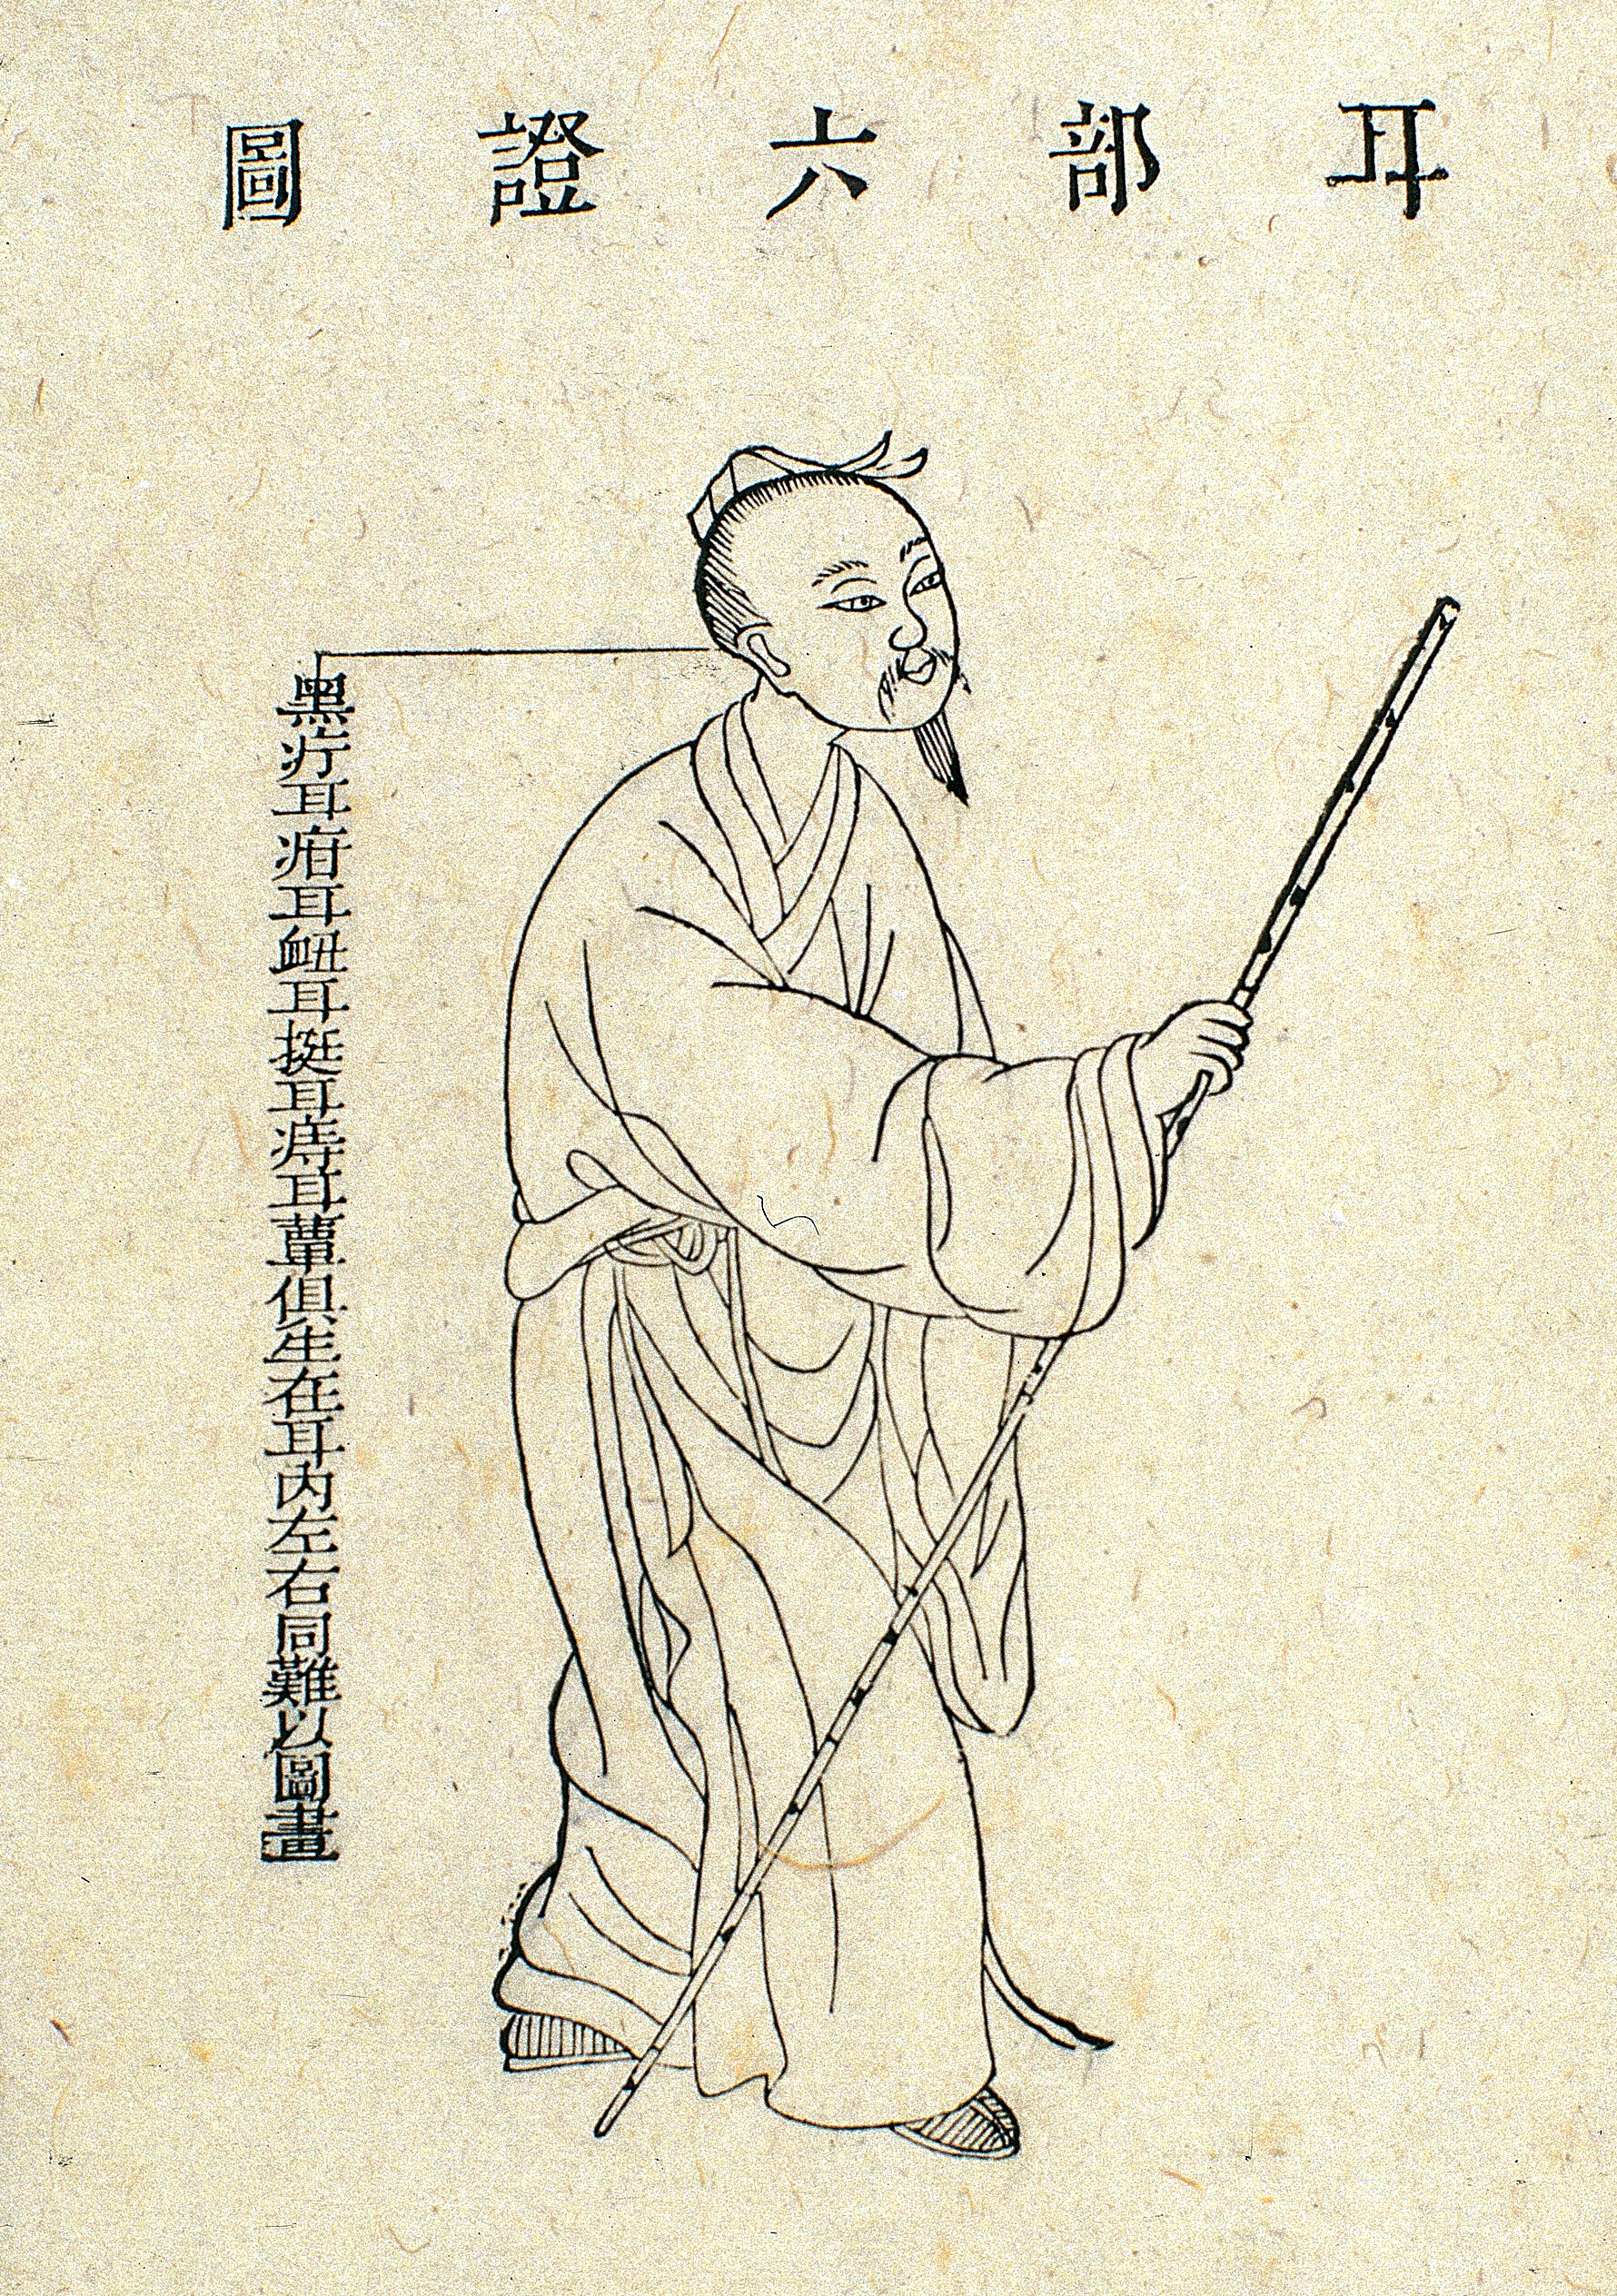 耳部六證圖
黑疔耳疳耳衄耳挺耳痔耳蕈俱生在耳內左右同難以圖畫